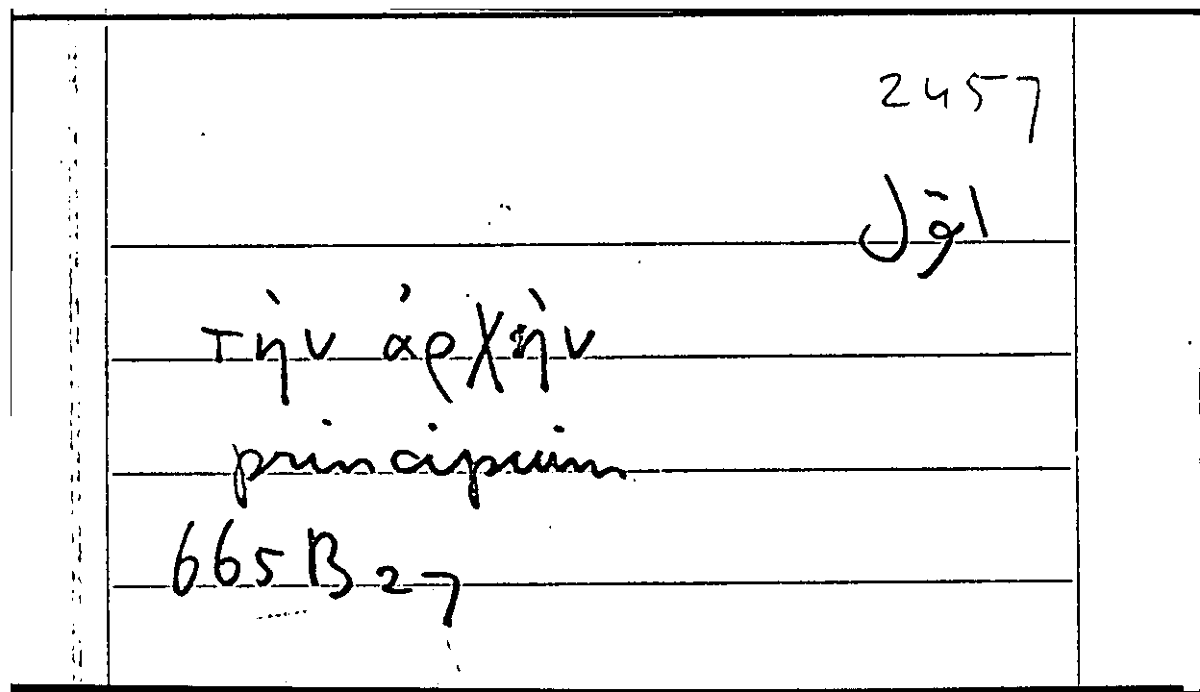 2457
اول
τὴν ἀρχὴν
principium
665 B 27